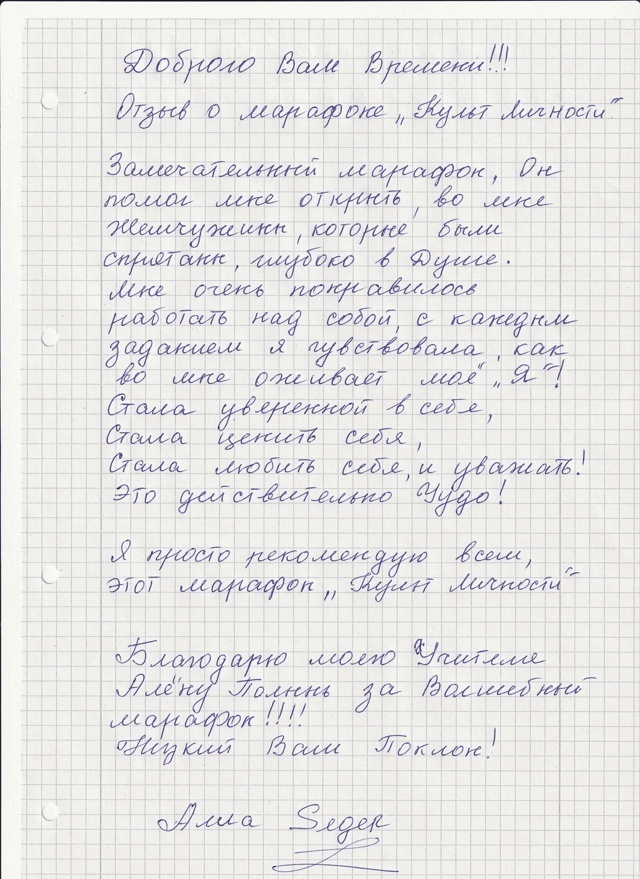 Доброго Вам Времени!!!
Отзыв о марафоне „Культ Личности"
Замечательный марафон, Он
помог мне открыть, во мне
Жемчужины, которые были
спрятаны, глубоко в Душе.
Мне очень понравилось
работать над собой, с каждым
заданием я чувствовала, как
во мне оживает моё „Я"!
Стала уверенной в себе,
Стала ценить себя,
Стала любить себя, и уважать!
Это действительно Чудо!
Я просто рекомендую всем,
этот марафон „Культ Личности"
Благодарю мою Учителя
Алёну Полынь за Волшебный
марафон!!!!
Низкий Вам Поклон!
Алла Seger